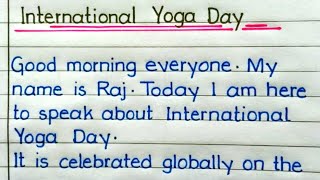 International Yoga Day
Good morning everyone. My
name is Raj. Today I am here
to speak about International
Yoga Day.
It is celebrated globally on the